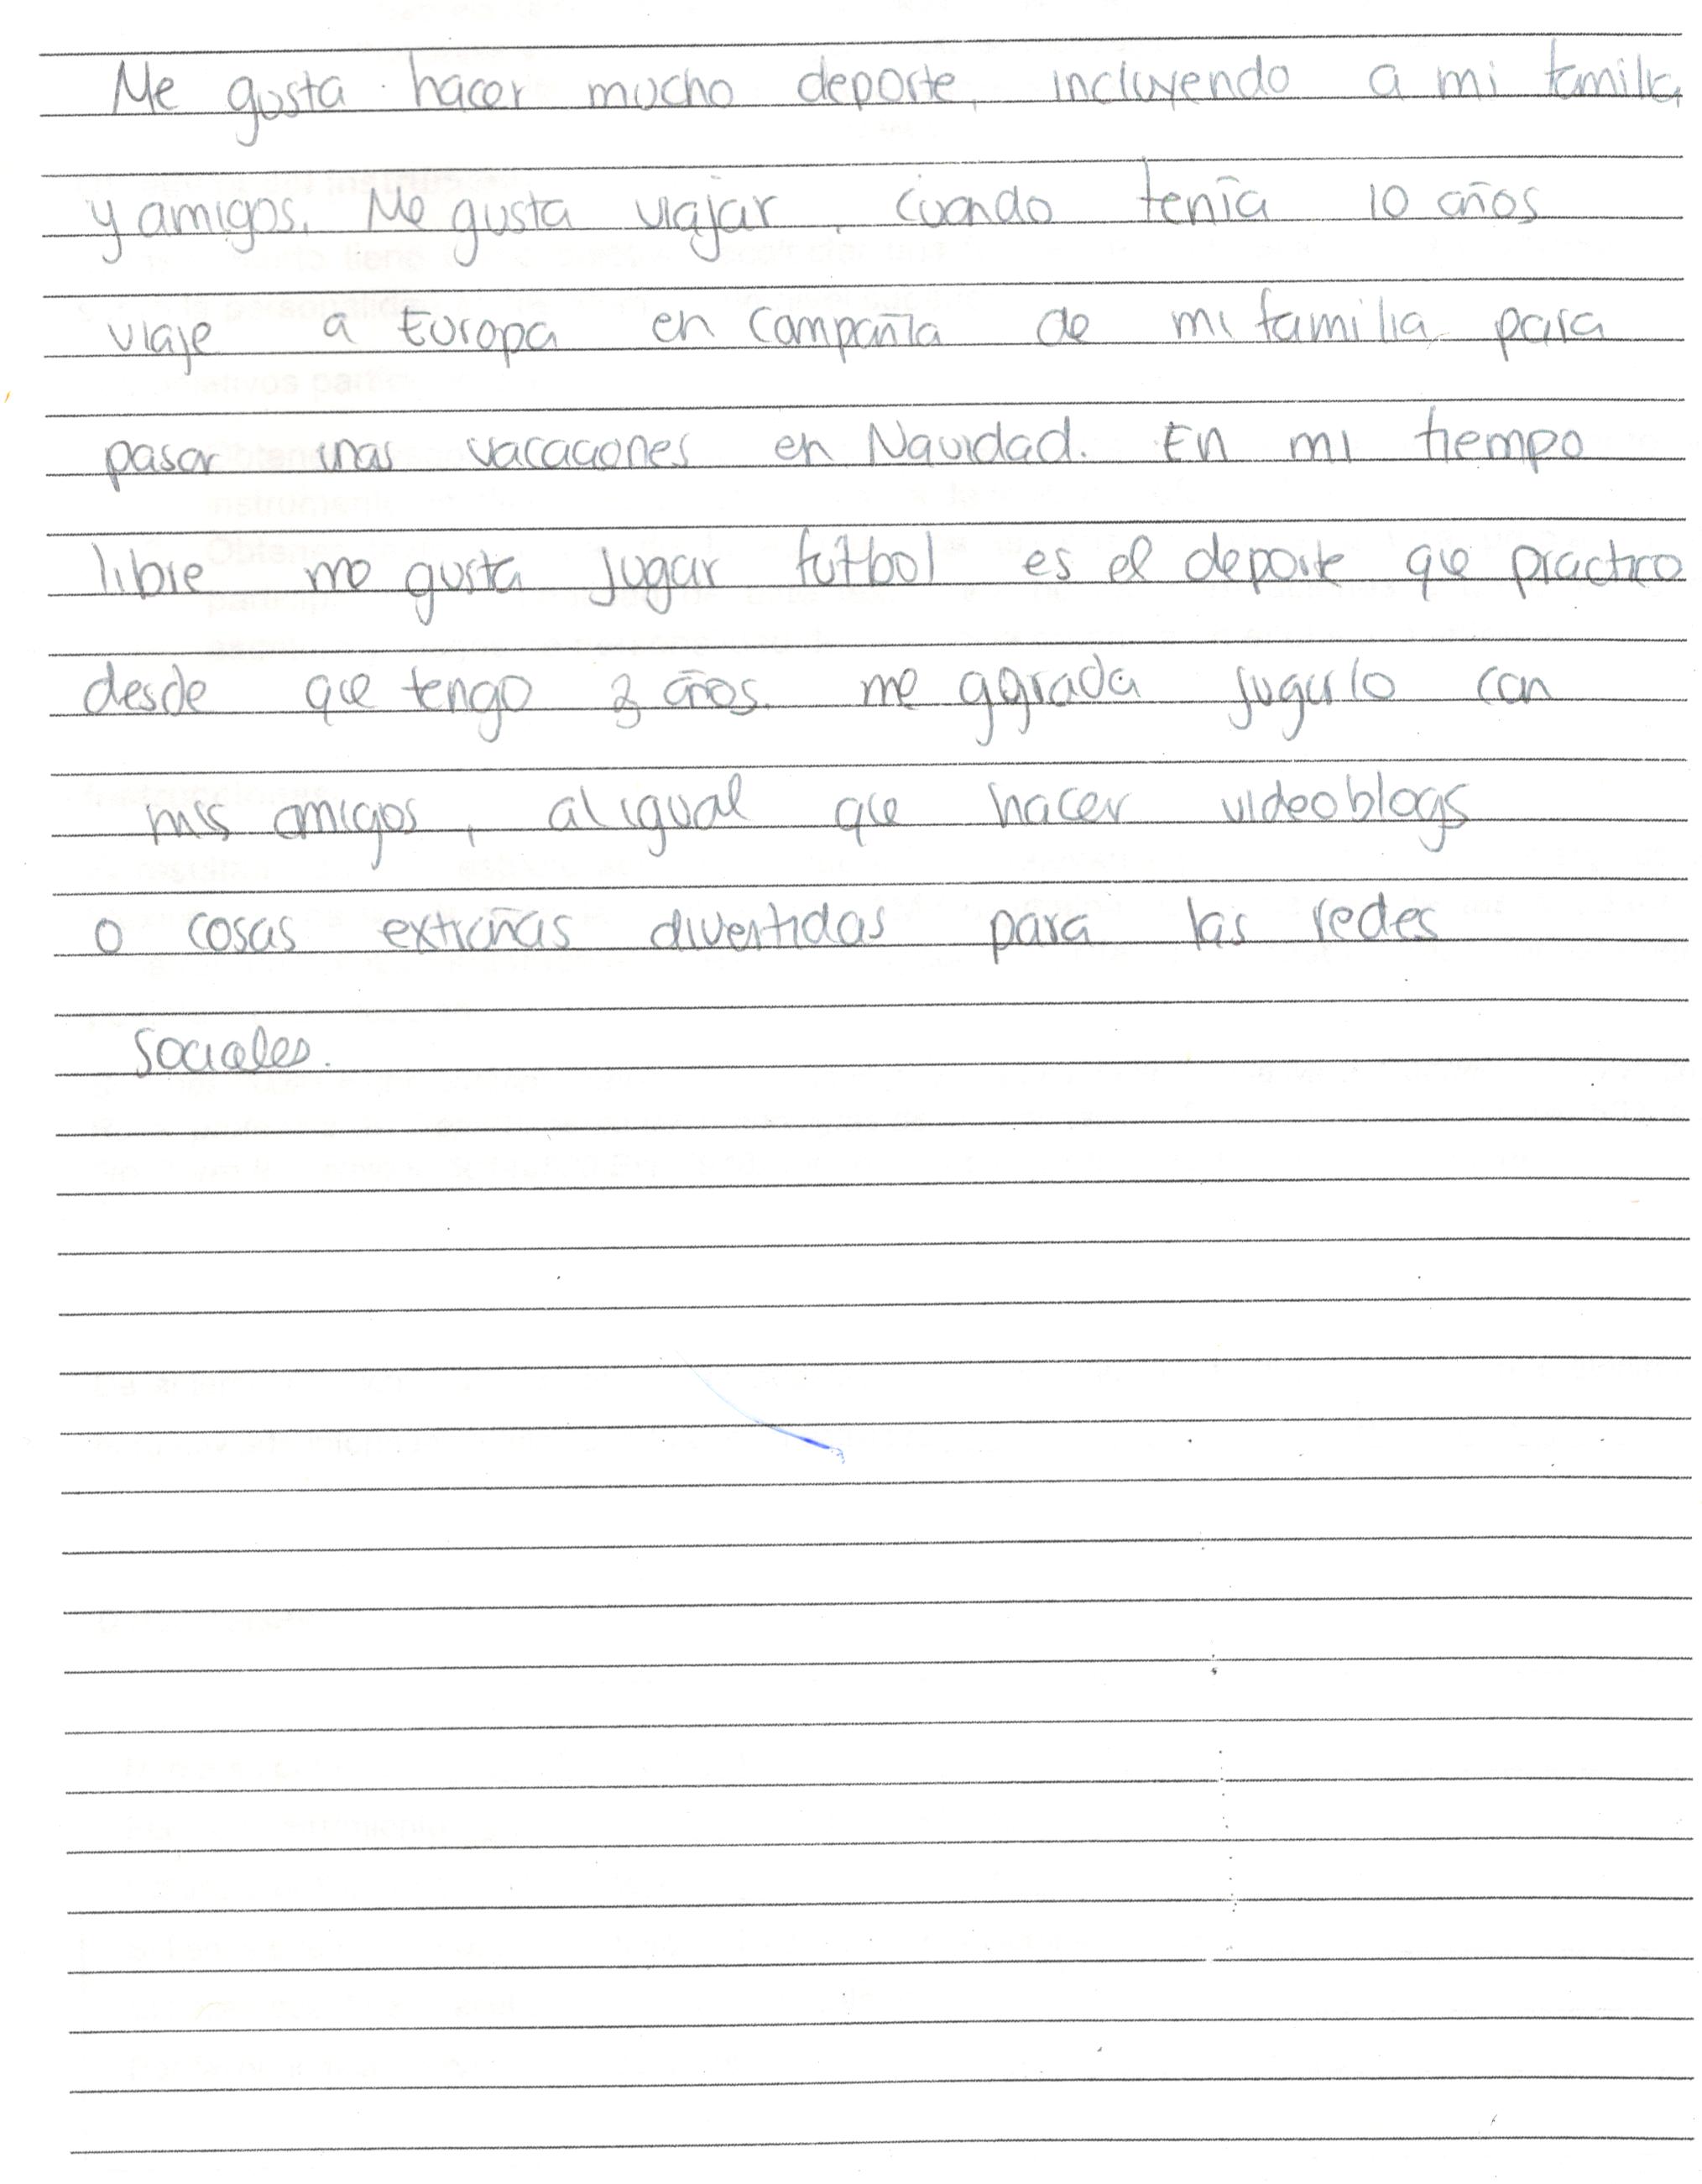 Me gusta hacer mucho deporte, incluyendo a mi familia
y amigos. Me gusta viajar, cuando tenía 10 años
viaje a Europa en compañía de mi familia para
pasar unas vacaciones en Navidad. En mi tiempo
libre me gusta jugar fútbol es el deporte que practico
desde que tengo 3 años. me agrada jugarlo con
mis amigos, al igual que hacer videoblogs
o cosas extrañas divertidas para las redes
sociales.